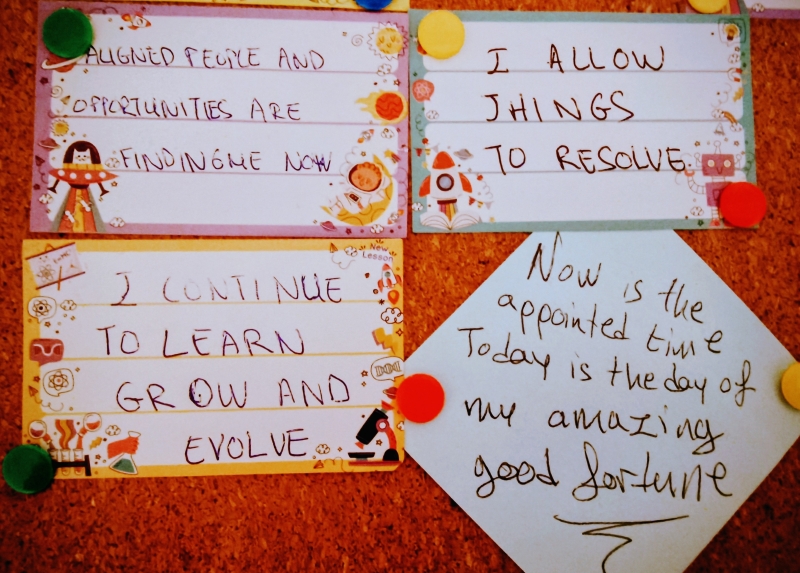 ALIGNED PEOPLE AND
OPPORTUNITIES ARE
FINDING ME NOW
I ALLOW
THINGS
TO RESOLVE
New
Lesson
I CONTINUE
TO LEARN
GROW AND
EVOLVE
Now is the
appointed time
Today is the day of
my amazing
good fortune